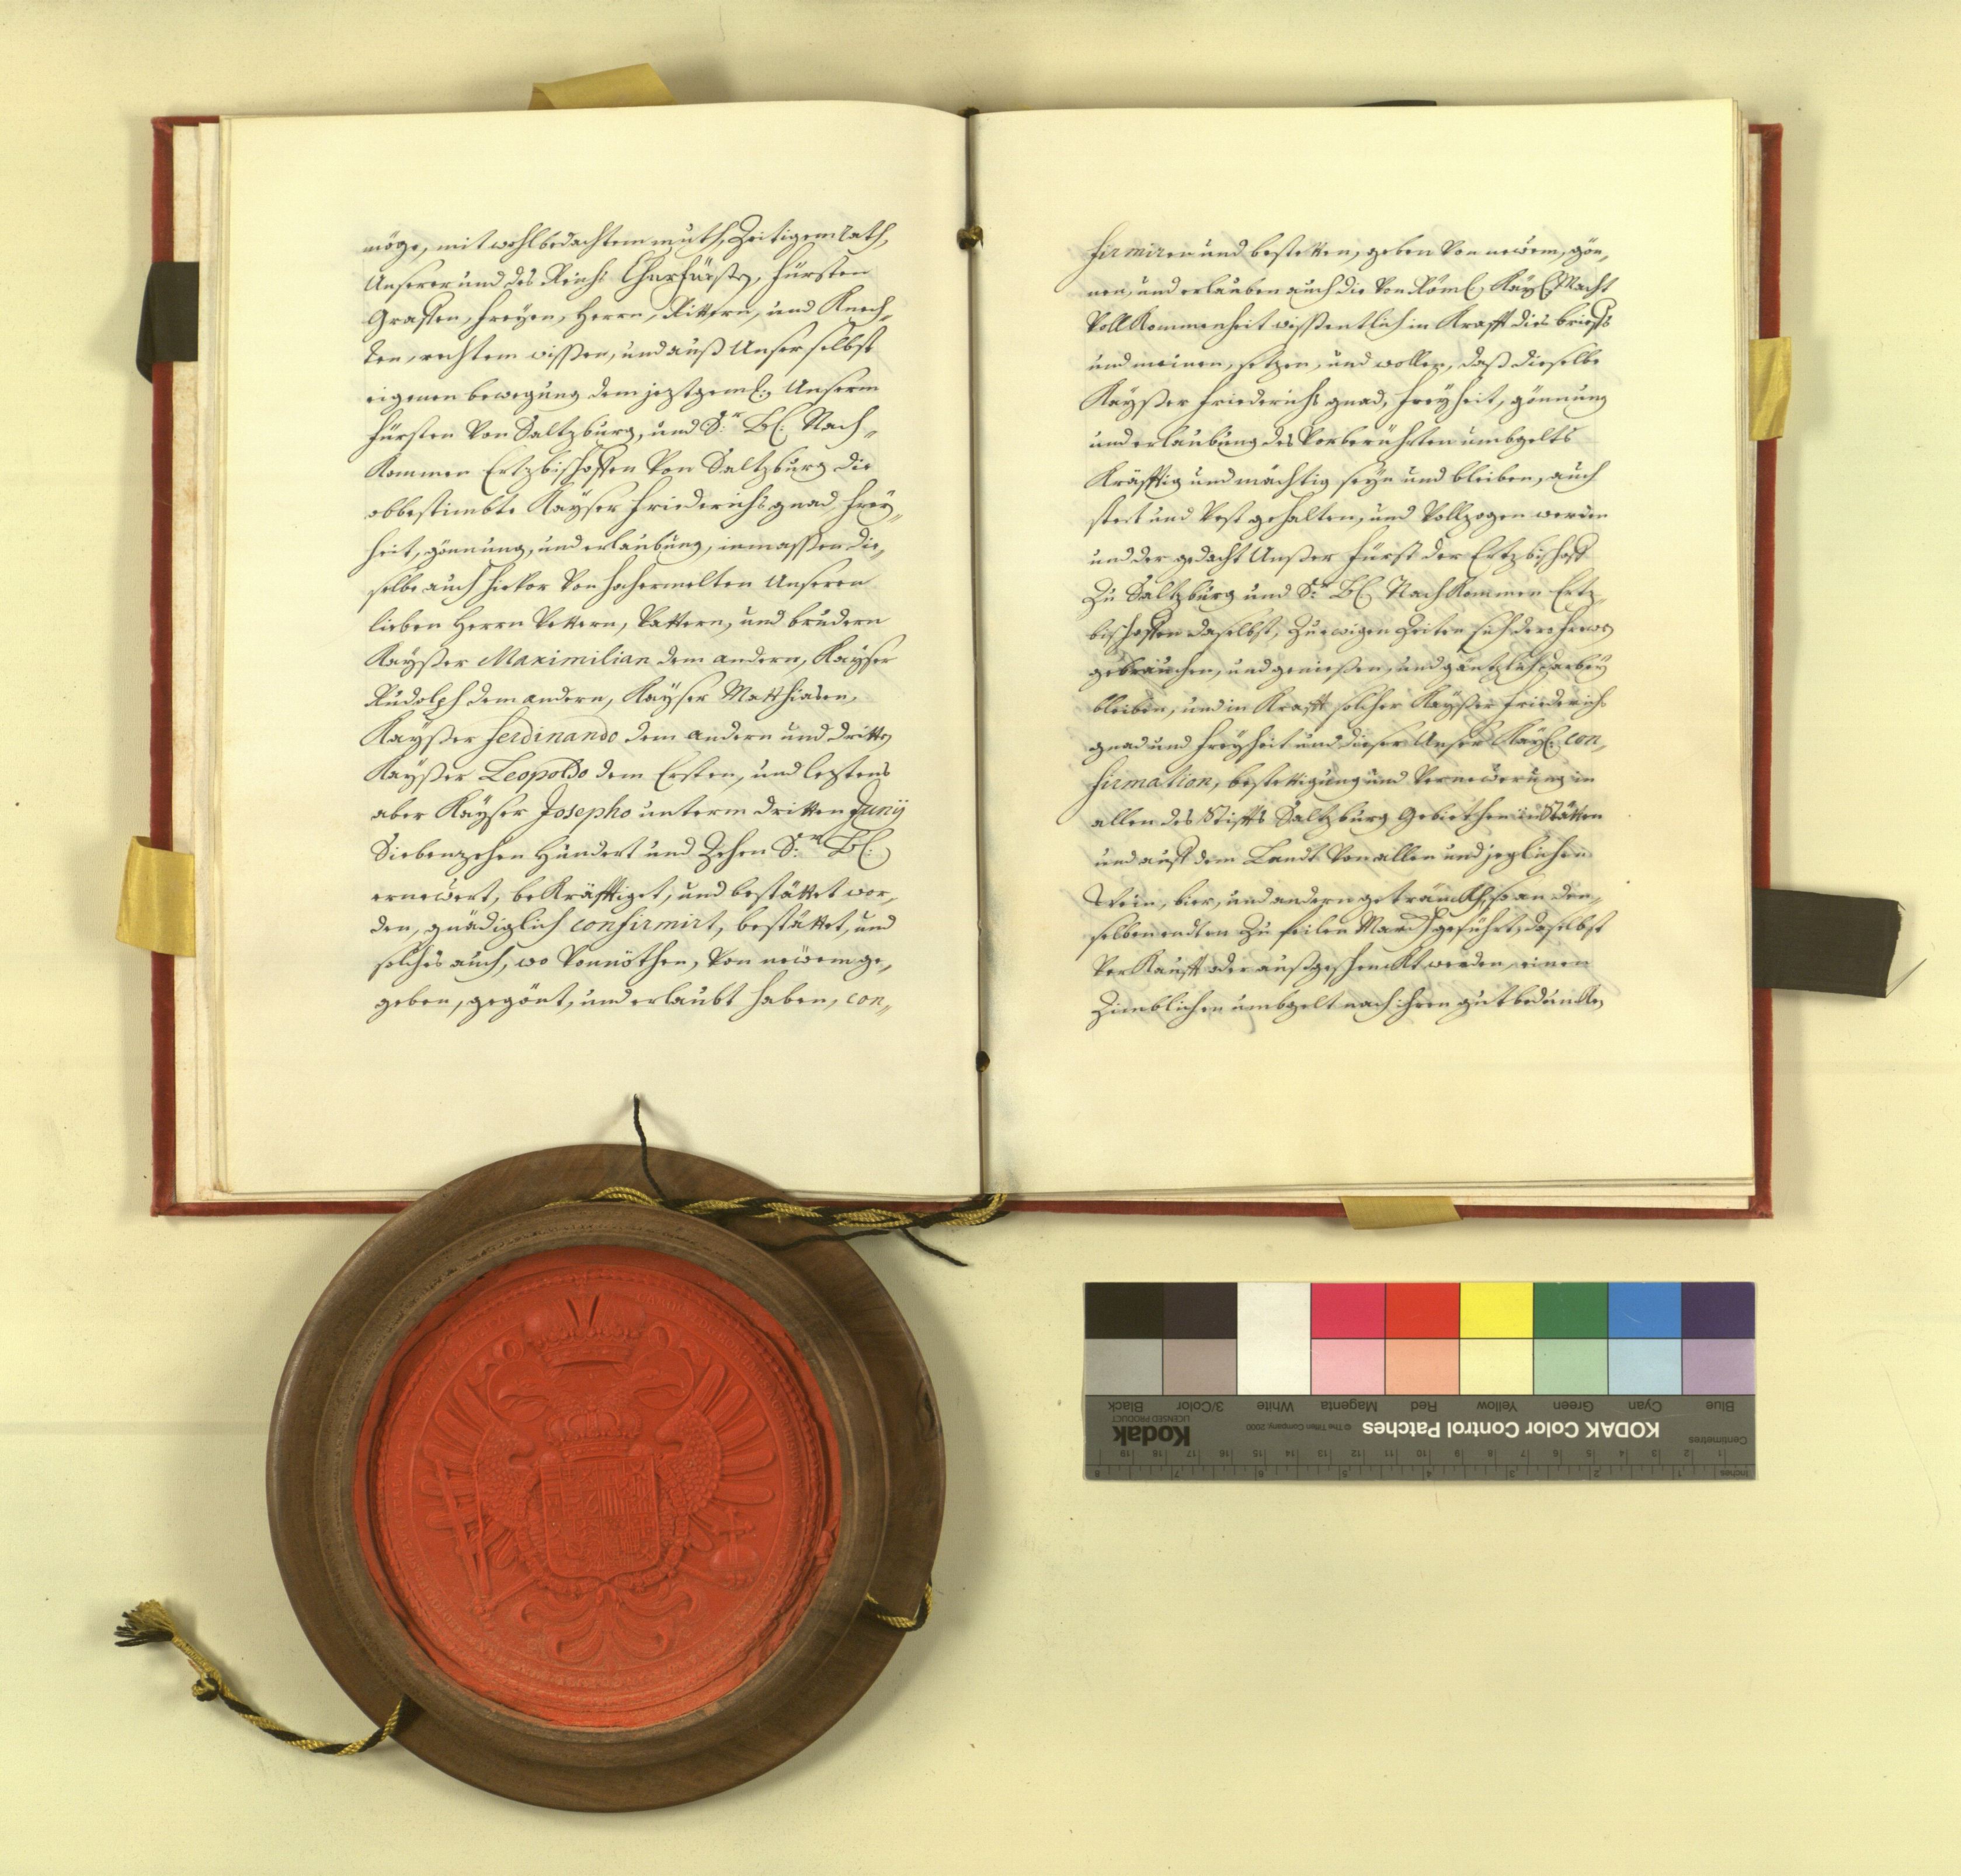 möge, mit wohlbedachtem muth, Zeitigem rath,
Unserer und des Reichs Churfürsten, Fürsten
Graffen, Freyen, Herrn, Rittern, und Knech„
ten, rechtem wissen, und auß Unser selbst
eigenen bewegung dem jeztgeml:, Unserm
Fürsten Von Saltzburg, und S:r Ld: Nach„
Kommen Ertzbischoffen Von Saltzburg die
obbestimbte Kayser Friederichs gnad, Frey„
heit, gönnung, und erlaubung, inmassen die„
selbe auch hievor Von hochermelten Unseren
lieben Herrn Vettern, Vattern, und brudern
Kayßer Maximilian dem andern, Kayser
Rudolph dem andern, Kayser Matthiasen,
Kayßer Ferdinando dem andern und dritten
Kayßer Leopoldo dem Ersten, und leztens
aber Kayser Josepho unterm dritten Junij
Siebenzehen Hundert und Zehen S:r Ld:
ernewert, beKräfftiget, und bestättet wor„
den, gnädiglich confirmirt, bestättet, und
solches auch, wo Vonnöthen, Von newem ge„
geben, gegönt, und erlaubt haben, con„
firmiren und bestetten, geben Von newem, gön„
nen, und erlauben auch die Von Röml: Kayl: Macht
VollKommenheit wissentlich in Krafft dies brieffs
und meinen, setzen, und wollen, daß dieselbe
Kayßer Friederichs gnad, Freyheit, gönnung
und erlaubung des Vorberührten umbgelts
Kräfftig und mächtig seyn und bleiben, auch
stett und Vest gehalten, und Vollzogen werden
und der gedacht Unßer Fürst der Ertzbischoff
Zu Saltzburg und S:r Ld: NachKommen Ertz„
bischoffen daselbst, Zu ewigen Zeiten sich deren frewen
gebrauchen, und geniessen, und gäntzlich darbey
bleiben, und in Krafft solcher Kayßer Friederichs
gnad und Freyheit und dieser Unser Kayl: con„
firmation, bestettigung und Vernewerung in
allen des Stiffts Saltzburg Gebiethen in Stätten
und auff dem Landt Von allen und jeglichen
Wein, bier, und andern getränckh, so an den„
selben enden Zu feilen Marckh geführt, daselbst
VerKaufft oder außgeschenckt werden, einen
Zimblichen umbgelt nach ihren gutbeduncken
KODAK Color Control Patches
Kodak
LICENSED PRODUCT
© The Tiffen Company, 2000
Centimetres
Inches
Blue Cyan Green Yellow Red Magenta White 3/Color Black
1 2 3 4 5 6 7 8 9 10 11 12 13 14 15 16 17 18 19
1 2 3 4 5 6 7 8